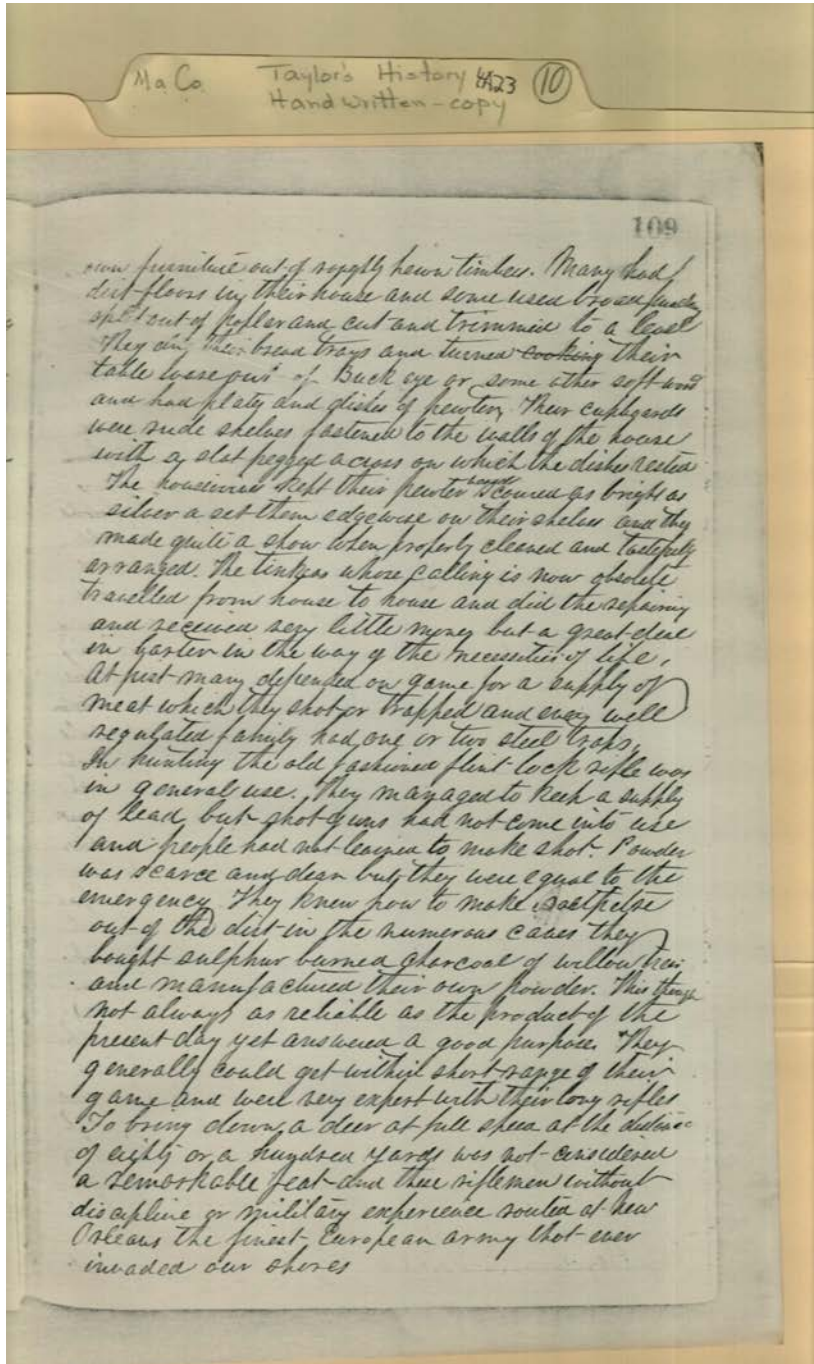 Ma Co. Taylor's History 4A23 10
Handwritten-copy
109
own furniture out of roughly hewn timber. Many had
dirt floors in their house and some used broad
split out of poplar and cut and trimmed to a level
They dug their bread trays and turned cooking their
table ware out of Buck eye or some other soft wood
and had plats and dishes of pewter, Their cupboards
were rude shelves fastened to the walls of the house
with a slat pegged across on which the dishes rested
The housewives kept their pewter scoured as bright as
silver a set them edgewise on their shelves and they
made quite a show when properly cleaned and tastefully
arranged. The tinkers whose calling is now obsolete
travelled from house to house and did the repairing
and received very little money but a great deal
in barter in the way of the necessities of life,
At first many depended on game for a supply of
meat which they shot or trapped and every well
regulated family had one or two steel traps.
In hunting the old fashioned flint lock rifle was
in general use. They managed to keep a supply
of lead but shot guns had not come into use
and people had not learned to make shot. Powder
was scarce and dear but they were equal to the
emergency They knew how to make saltpetre
out of the dirt in the numerous caves they
bought sulphur burned charcoal of willow
and manufactured their own powder. This though
not always as reliable as the product of the
present day yet answered a good purpose. They
generally could get within short range of their
game and were very expert with their long rifles
To bring down a deer at full speed at the distance
of eighty or a hundred yards was not considered
a remarkable feat and these riflemen without
discipline or military experience routed at New
Orleans the finest European army that ever
invaded our shores